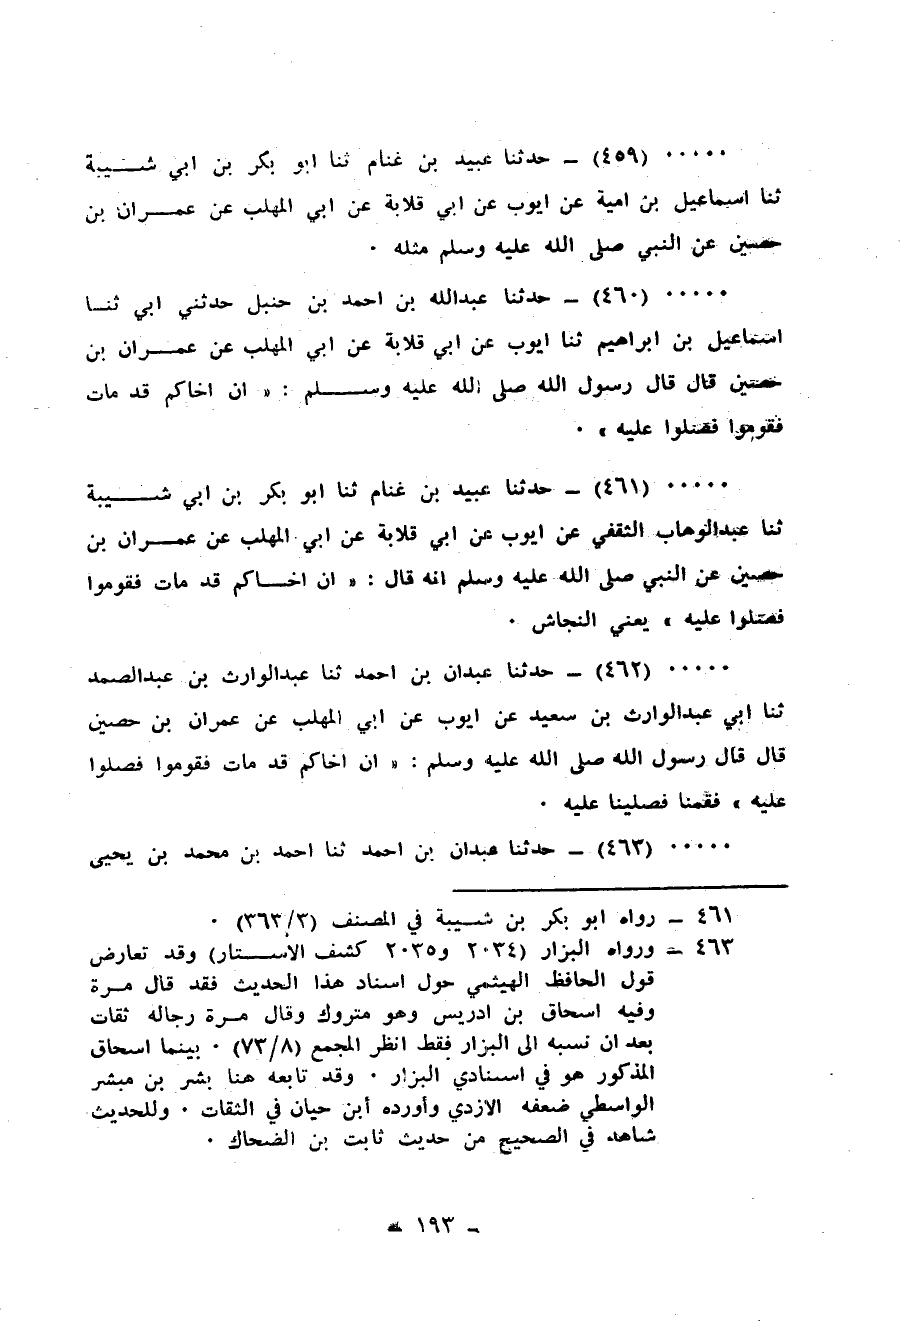 ٠٠٠٠٠ (٤٥٩) ـ حدثنا عبيد بن غنام ثنا ابو بكر بن ابي شـــيبة
ثنا اسماعيل بن امية عن ايوب عن ابي قلابة عن ابي المهلب عن عمـــران بن
حصين عن النبي صلى الله عليه وسلم مثله ٠
٠٠٠٠٠ (٤٦٠) ـ حدثنا عبدالله بن احمد بن حنبل حدثني ابي ثنــا
اسماعيل بن ابراهيم ثنا ايوب عن ابي قلابة عن ابي المهلب عن عمـــران بن
حصين قال قال رسول الله صلى الله عليه وســـلم : « ان اخاكم قد مات
فقوموا فصلوا عليه » ٠
٠٠٠٠٠ (٤٦١) ـ حدثنا عبيد بن غنام ثنا ابو بكر بن ابي شـــيبة
ثنا عبدالوهاب الثقفي عن ايوب عن ابي قلابة عن ابي المهلب عن عمـــران بن
حصين عن النبي صلى الله عليه وسلم انه قال : « ان اخـــاكم قد مات فقوموا
فصلوا عليه » يعني النجاش ٠
٠٠٠٠٠ (٤٦٢) ـ حدثنا عبدان بن احمد ثنا عبدالوارث بن عبدالصمد
ثنا ابي عبدالوارث بن سعيد عن ايوب عن ابي المهلب عن عمران بن حصين
قال قال رسول الله صلى الله عليه وسلم : « ان اخاكم قد مات فقوموا فصلوا
عليه » فقمنا فصلينا عليه ٠
٠٠٠٠٠ (٤٦٣) ـ حدثنا عبدان بن احمد ثنا احمد بن محمد بن يحيى
٤٦١ ـ رواه ابو بكر بن شـــيبة في المصنف (٣٦٣/٣) ٠
٤٦٣ ـ ورواه البزار (٢٠٣٤ و٢٠٣٥ كشف الأســـتار) وقد تعارض
قول الحافظ الهيثمي حول اسناد هذا الحديث فقد قال مـرة
وفيه اسحاق بن ادريس وهو متروك وقال مـرة رجاله ثقات
بعد ان نسبه الى البزار فقط انظر المجمع (٧٣/٨) ٠ بينما اسحاق
المذكور هو في اسنادي البزار ٠ وقد تابعه هنا بشر بن مبشر
الواسطي ضعفه الازدي وأورده أبن حيان في الثقات ٠ وللحديث
شاهد في الصحيح من حديث ثابت بن الضحاك ٠
ـ ١٩٣ ـ